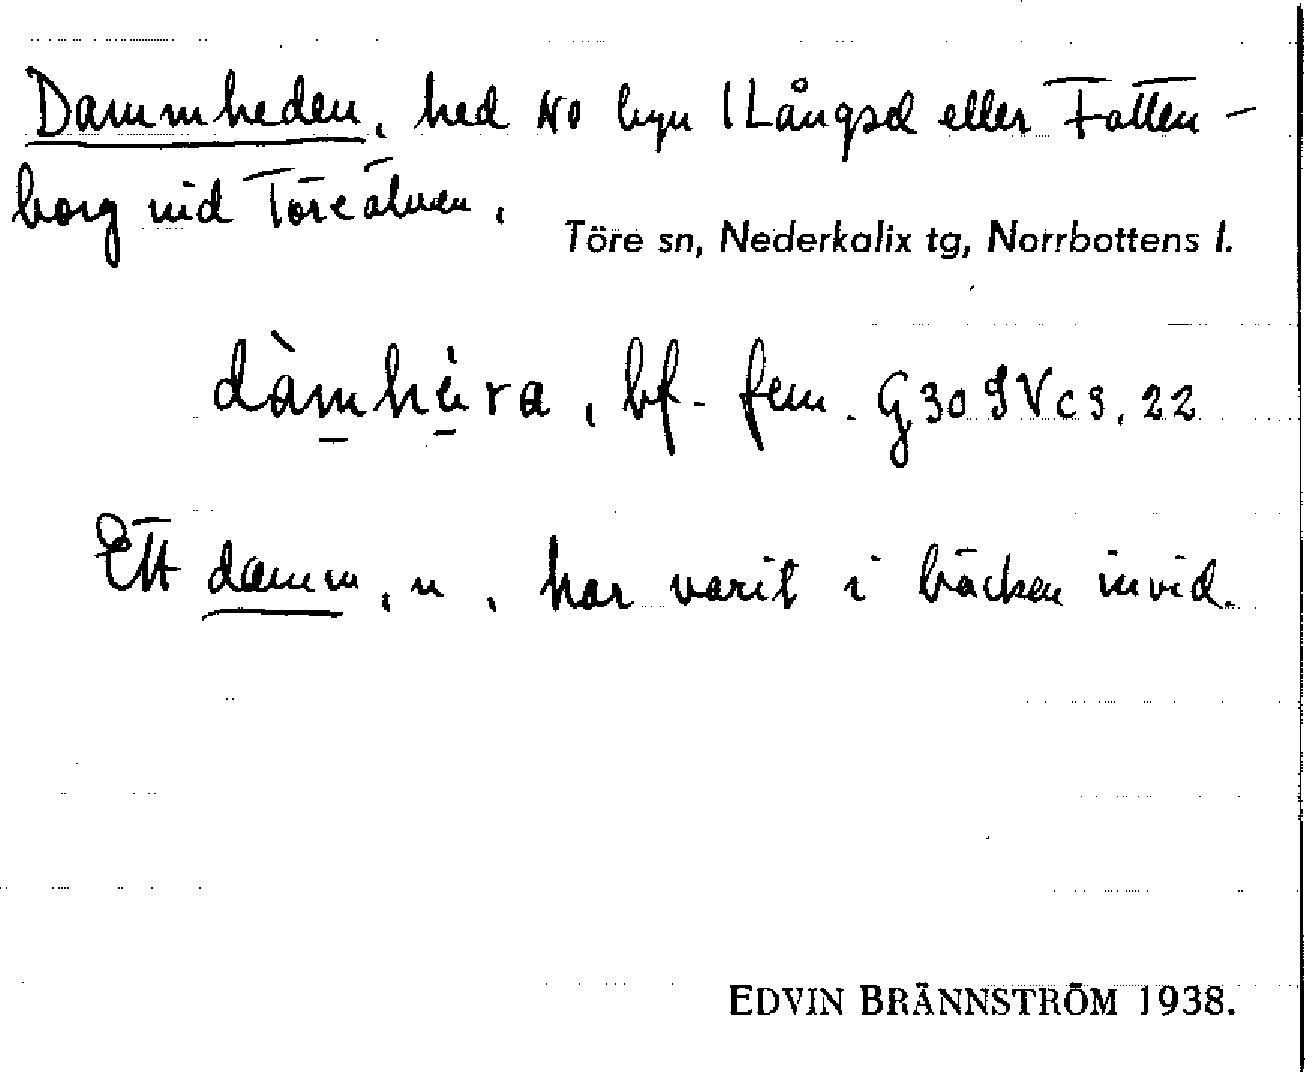 Dammheden, hed NO byn i Långsel eller Fatten-
borg vid Töreälven.
Töre sn, Nederkalix tg, Norrbottens l.
dàmhèra, bf. fem. G30
Ett damm, n, har varit i bäcken invid.
EDVIN BRÄNNSTRÖM 1938.